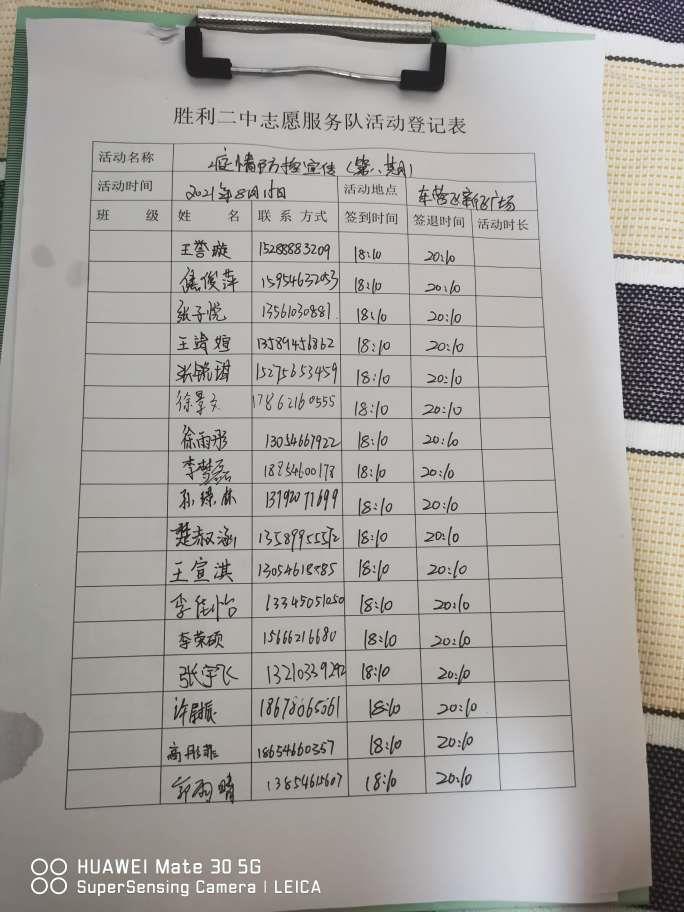 胜利二中志愿服务队活动登记表
活动名称 疫情防控宣传(第八期)
活动时间 2021年8月15日 活动地点 广场
班 级 姓 名 联系方式 签到时间 签退时间 活动时长
王誉璇 15288883209 18:10 20:10
侯俊萍 15954632053 18:10 20:10
张子悦 13561030881 18:10 20:10
王 13589456862 18:10 20:10
张锐琪 15275653459 18:10 20:10
徐景文 17862160555 18:10 20:10
徐雨彤 13054667922 18:10 20:10
李梦磊 18854600178 18:10 20:10
孙 13792071699 18:10 20:10
楚淑涵 18:10 20:10
王宣淇 18:10 20:10
李佳怡 13345051050 18:10 20:10
李荣硕 15666216680 18:10 20:10
张宇飞 13210339292 18:10 20:10
许 振 18678065061 18:10 20:10
高彤菲 18654660357 18:10 20:10
郭雨晴 13854615607 18:10 20:10
HUAWEI Mate 30 5G
SuperSensing Camera | LEICA